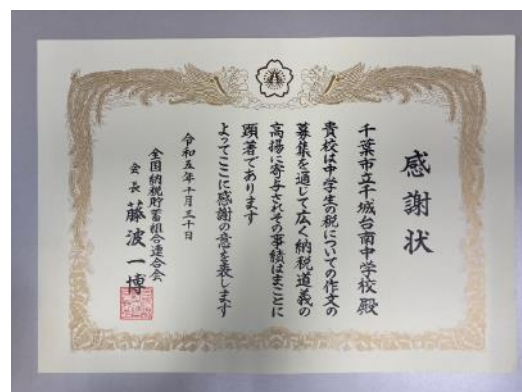 感謝状
千葉市立千城台南中学校殿
貴校は中学生の税についての作文の
募集を通じて広く納税道義の
高揚に寄与されその事績はまことに
顕著であります
よってここに感謝の意を表します
令和五年十月三十日
全国納税貯蓄組合連合会
会長 藤波一博